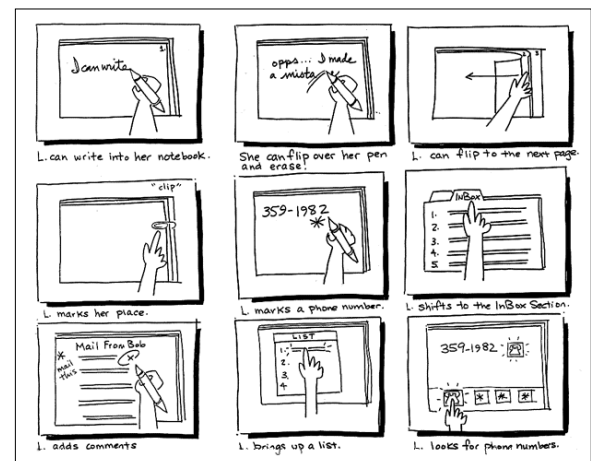 1
I can write
L. can write into her notebook.
opps... I made
a mista
She can flip over her pen
and erase!
2 3
L. can flip to the next page.
"clip"
L. marks her place.
359-1982
*
L. marks a phone number.
InBox
1.
2.
3.
4.
5.
L. shifts to the InBox Section.
Mail From Bob
*
mail
this
x
L. adds comments
LIST
1.
2.
3.
4
L. brings up a list.
359-1982
* * *
L. looks for phone numbers.